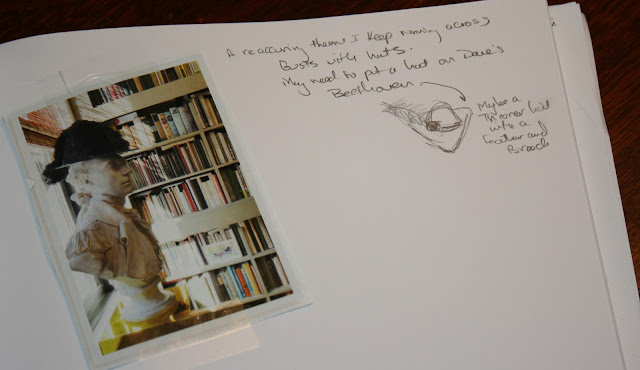 A reaccuring theme I keep running across
Busts with hats.
May need to put a hat on Dave's
Beethoven
Maybe a
hat
with a
feather and
Brooch